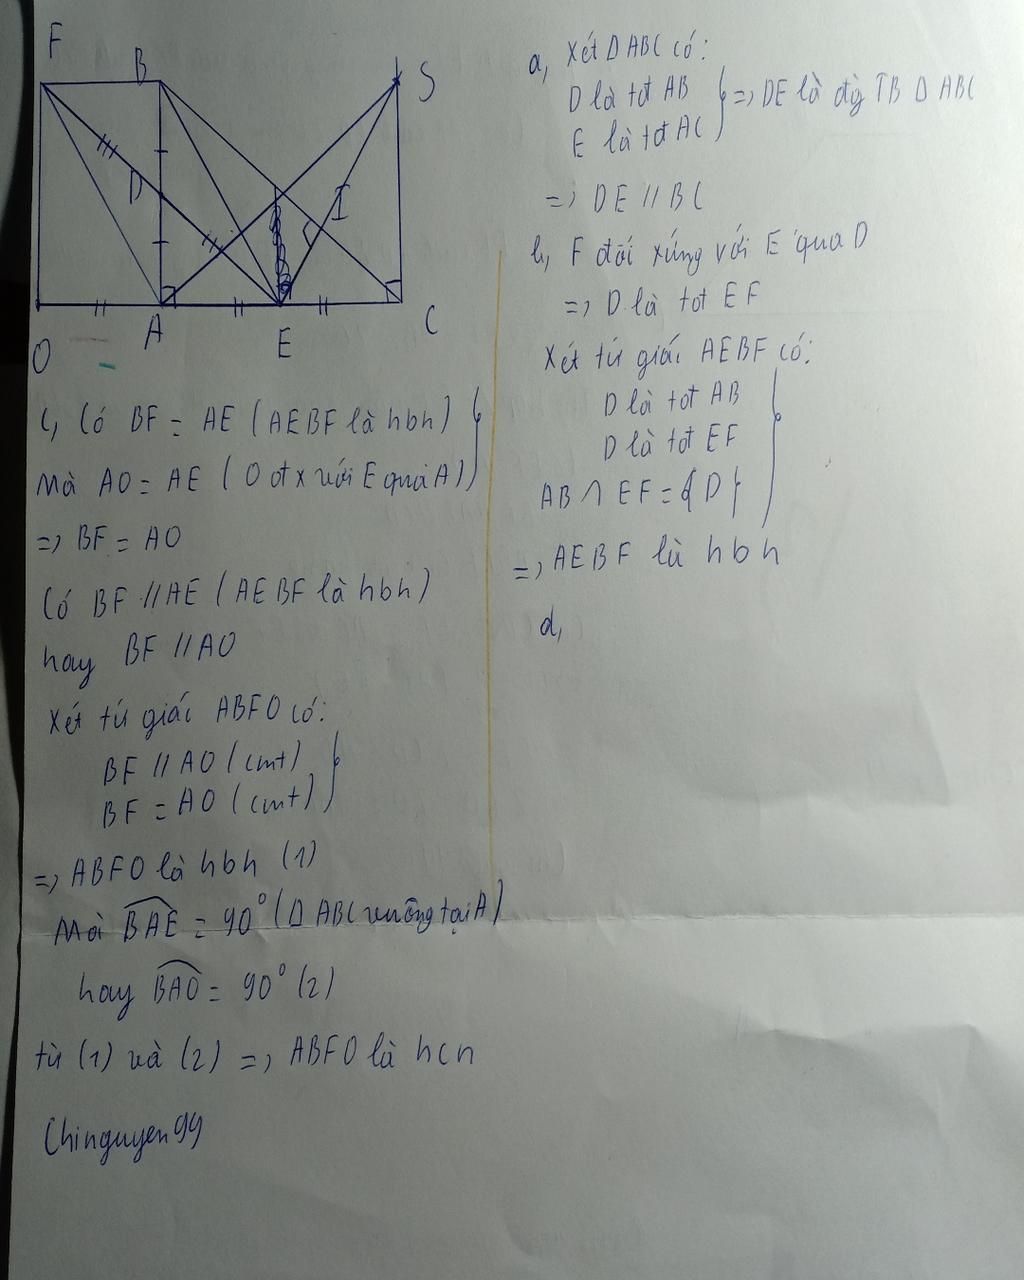 F
B
S
D
I
A
E
C
O
a, Xét Δ ABC có:
D là tđ AB
E là tđ AC
=> DE là đg TB Δ ABC
=> DE // BC
b, F đối xứng với E qua D
=> D là tđ EF
Xét tứ giác AEBF có:
D là tđ AB
D là tđ EF
AB ∩ EF = {D}
=> AEBF là hbh
d,
c, Có BF = AE (AEBF là hbh)
Mà AO = AE (O đx với E qua A)
=> BF = AO
Có BF // AE (AEBF là hbh)
hay BF // AO
Xét tứ giác ABFO có:
BF // AO (cmt)
BF = AO (cmt)
=> ABFO là hbh (1)
Mà BAE = 90° (Δ ABC vuông tại A)
hay BAO = 90° (2)
từ (1) và (2) => ABFO là hcn
Chinguyen99